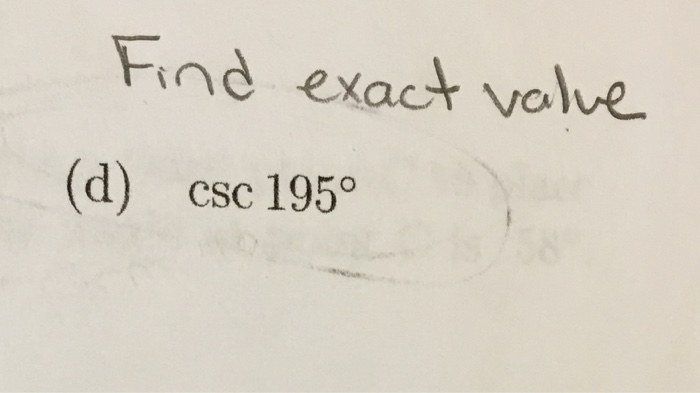 Find exact value
(d) csc 195°